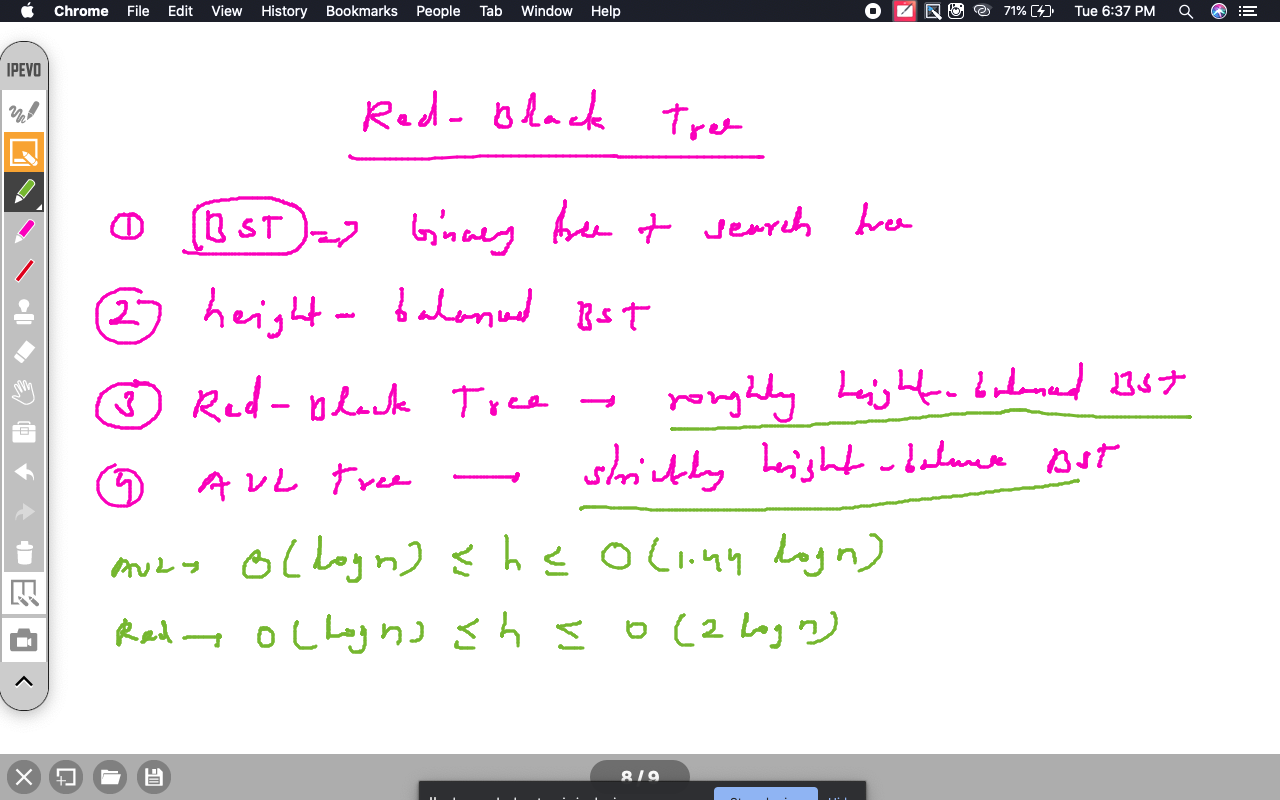 Chrome File Edit View History Bookmarks People Tab Window Help 71% Tue 6:37 PM
IPEVO
Red-Black Tree
① BST => binary tree + search tree
② height-balanced BST
③ Red-Black Tree → roughly height-balanced BST
④ AVL Tree → strictly height-balance BST
AVL → O(log n) ≤ h ≤ O(1.44 log n)
Red → O(log n) ≤ h ≤ O(2 log n)
8 / 9